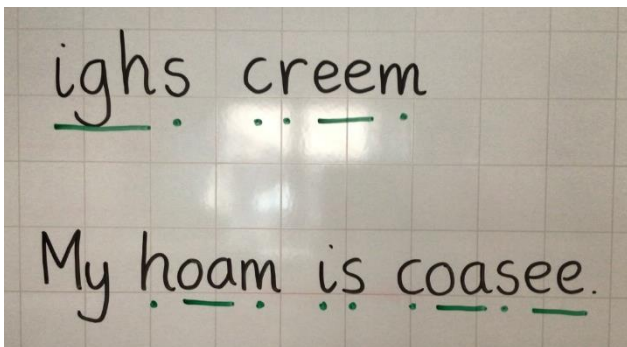 ighs creem
My hoam is coasee.